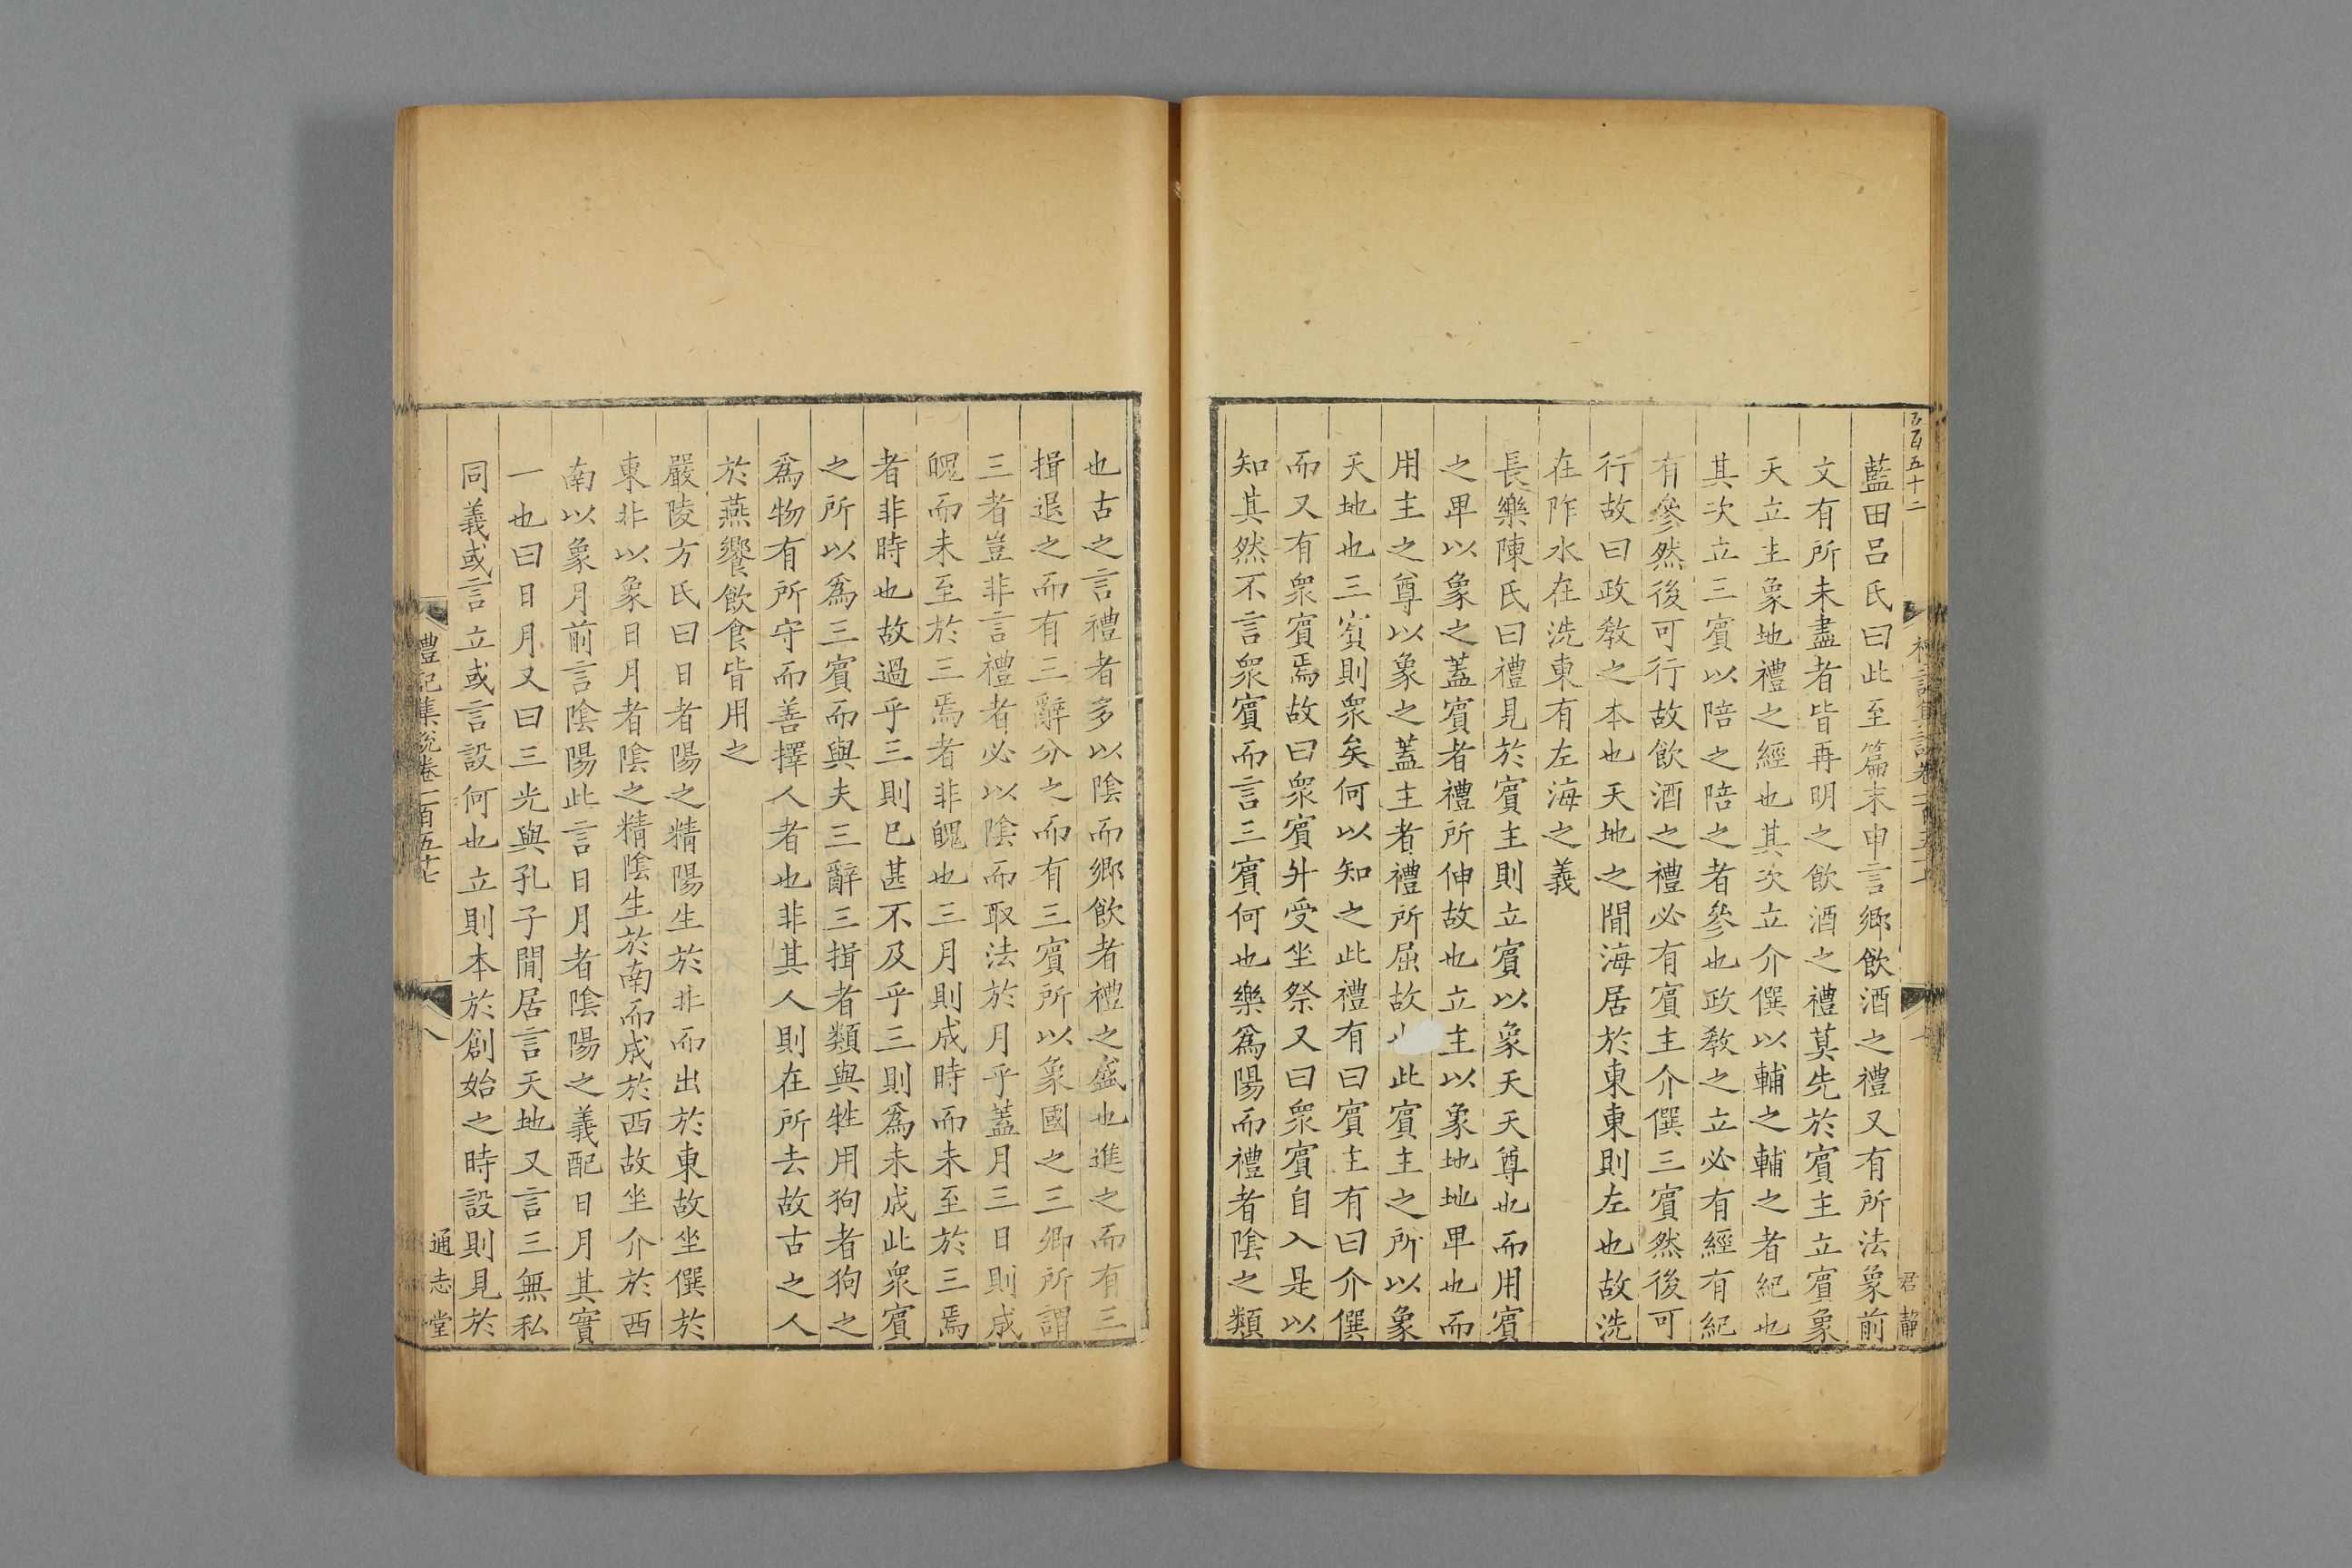 藍田呂氏曰此至篇末申言鄉飲酒之禮又有所法象前
文有所未盡者皆再明之飲酒之禮莫先於賓主立賓象
天立主象地禮之經也其次立介僎以輔之輔之者紀也
其次立三賓以陪之陪之者參也政敎之立必有經有紀
有參然後可行故飲酒之禮必有賓主介僎三賓然後可
行故曰政敎之本也天地之閒海居於東東則左也故洗
在阼水在洗東有左海之義
長樂陳氏曰禮見於賓主則立賓以象天天尊也而用賓
之卑以象之蓋賓者禮所伸故也立主以象地地卑也而
用主之尊以象之蓋主者禮所屈故此賓主之所以象
天地也三賓則衆矣何以知之此禮有曰賓主有曰介僎
而又有衆賓焉故曰衆賓升受坐祭又曰衆賓自入是以
知其然不言衆賓而言三賓何也樂爲陽而禮者陰之類
君靜
也古之言禮者多以陰而鄉飲者禮之盛也進之而有三
揖退之而有三辭分之而有三賓所以象國之三卿所謂
三者豈非言禮者必以陰而取法於月乎蓋月三日則成
魄而未至於三焉者非魄也三月則成時而未至於三焉
者非時也故過乎三則已甚不及乎三則爲未成此衆賓
之所以爲三賓而與夫三辭三揖者類與牲用狗者狗之
爲物有所守而善擇人者也非其人則在所去故古之人
於燕饗飲食皆用之
嚴陵方氏曰日者陽之精陽生於北而出於東故坐僎於
東北以象日月者陰之精陰生於南而成於西故坐介於西
南以象月前言陰陽此言日月者陰陽之義配日月其實
一也曰日月又曰三光與孔子閒居言天地又言三無私
同義或言立或言設何也立則本於創始之時設則見於
禮記集說卷一百五
八
通志堂